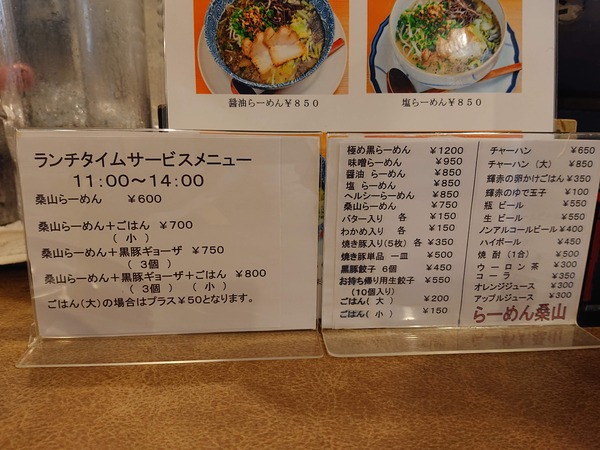 醤油らーめん¥850
塩らーめん¥850
ランチタイムサービスメニュー
11:00〜14:00
桑山らーめん ¥600
桑山らーめん+ごはん ¥700
(小)
桑山らーめん+黒豚ギョーザ ¥750
(3個)
桑山らーめん+黒豚ギョーザ+ごはん ¥800
(3個) (小)
ごはん(大)の場合はプラス¥50となります。
極め黒らーめん ¥1200
味噌らーめん ¥950
醤油 らーめん ¥850
塩 らーめん ¥850
ヘルシーらーめん ¥850
桑山らーめん ¥750
バター入り 各 ¥150
わかめ入り 各 ¥150
焼き豚入り(5枚) 各 ¥350
焼き豚単品 一皿 ¥500
黒豚餃子 6個 ¥450
お持ち帰り用生餃子 ¥550
(10個入り)
ごはん(大) ¥200
ごはん(小) ¥150
チャーハン ¥650
チャーハン(大) ¥850
輝赤の卵かけごはん ¥350
輝赤のゆで玉子 ¥100
瓶 ビール ¥550
生 ビール ¥550
ノンアルコールビール ¥400
ハイボール ¥450
焼 酎(1合) ¥500
ウーロン茶 ¥300
コーラ ¥350
オレンジジュース ¥300
アップルジュース ¥300
らーめん桑山